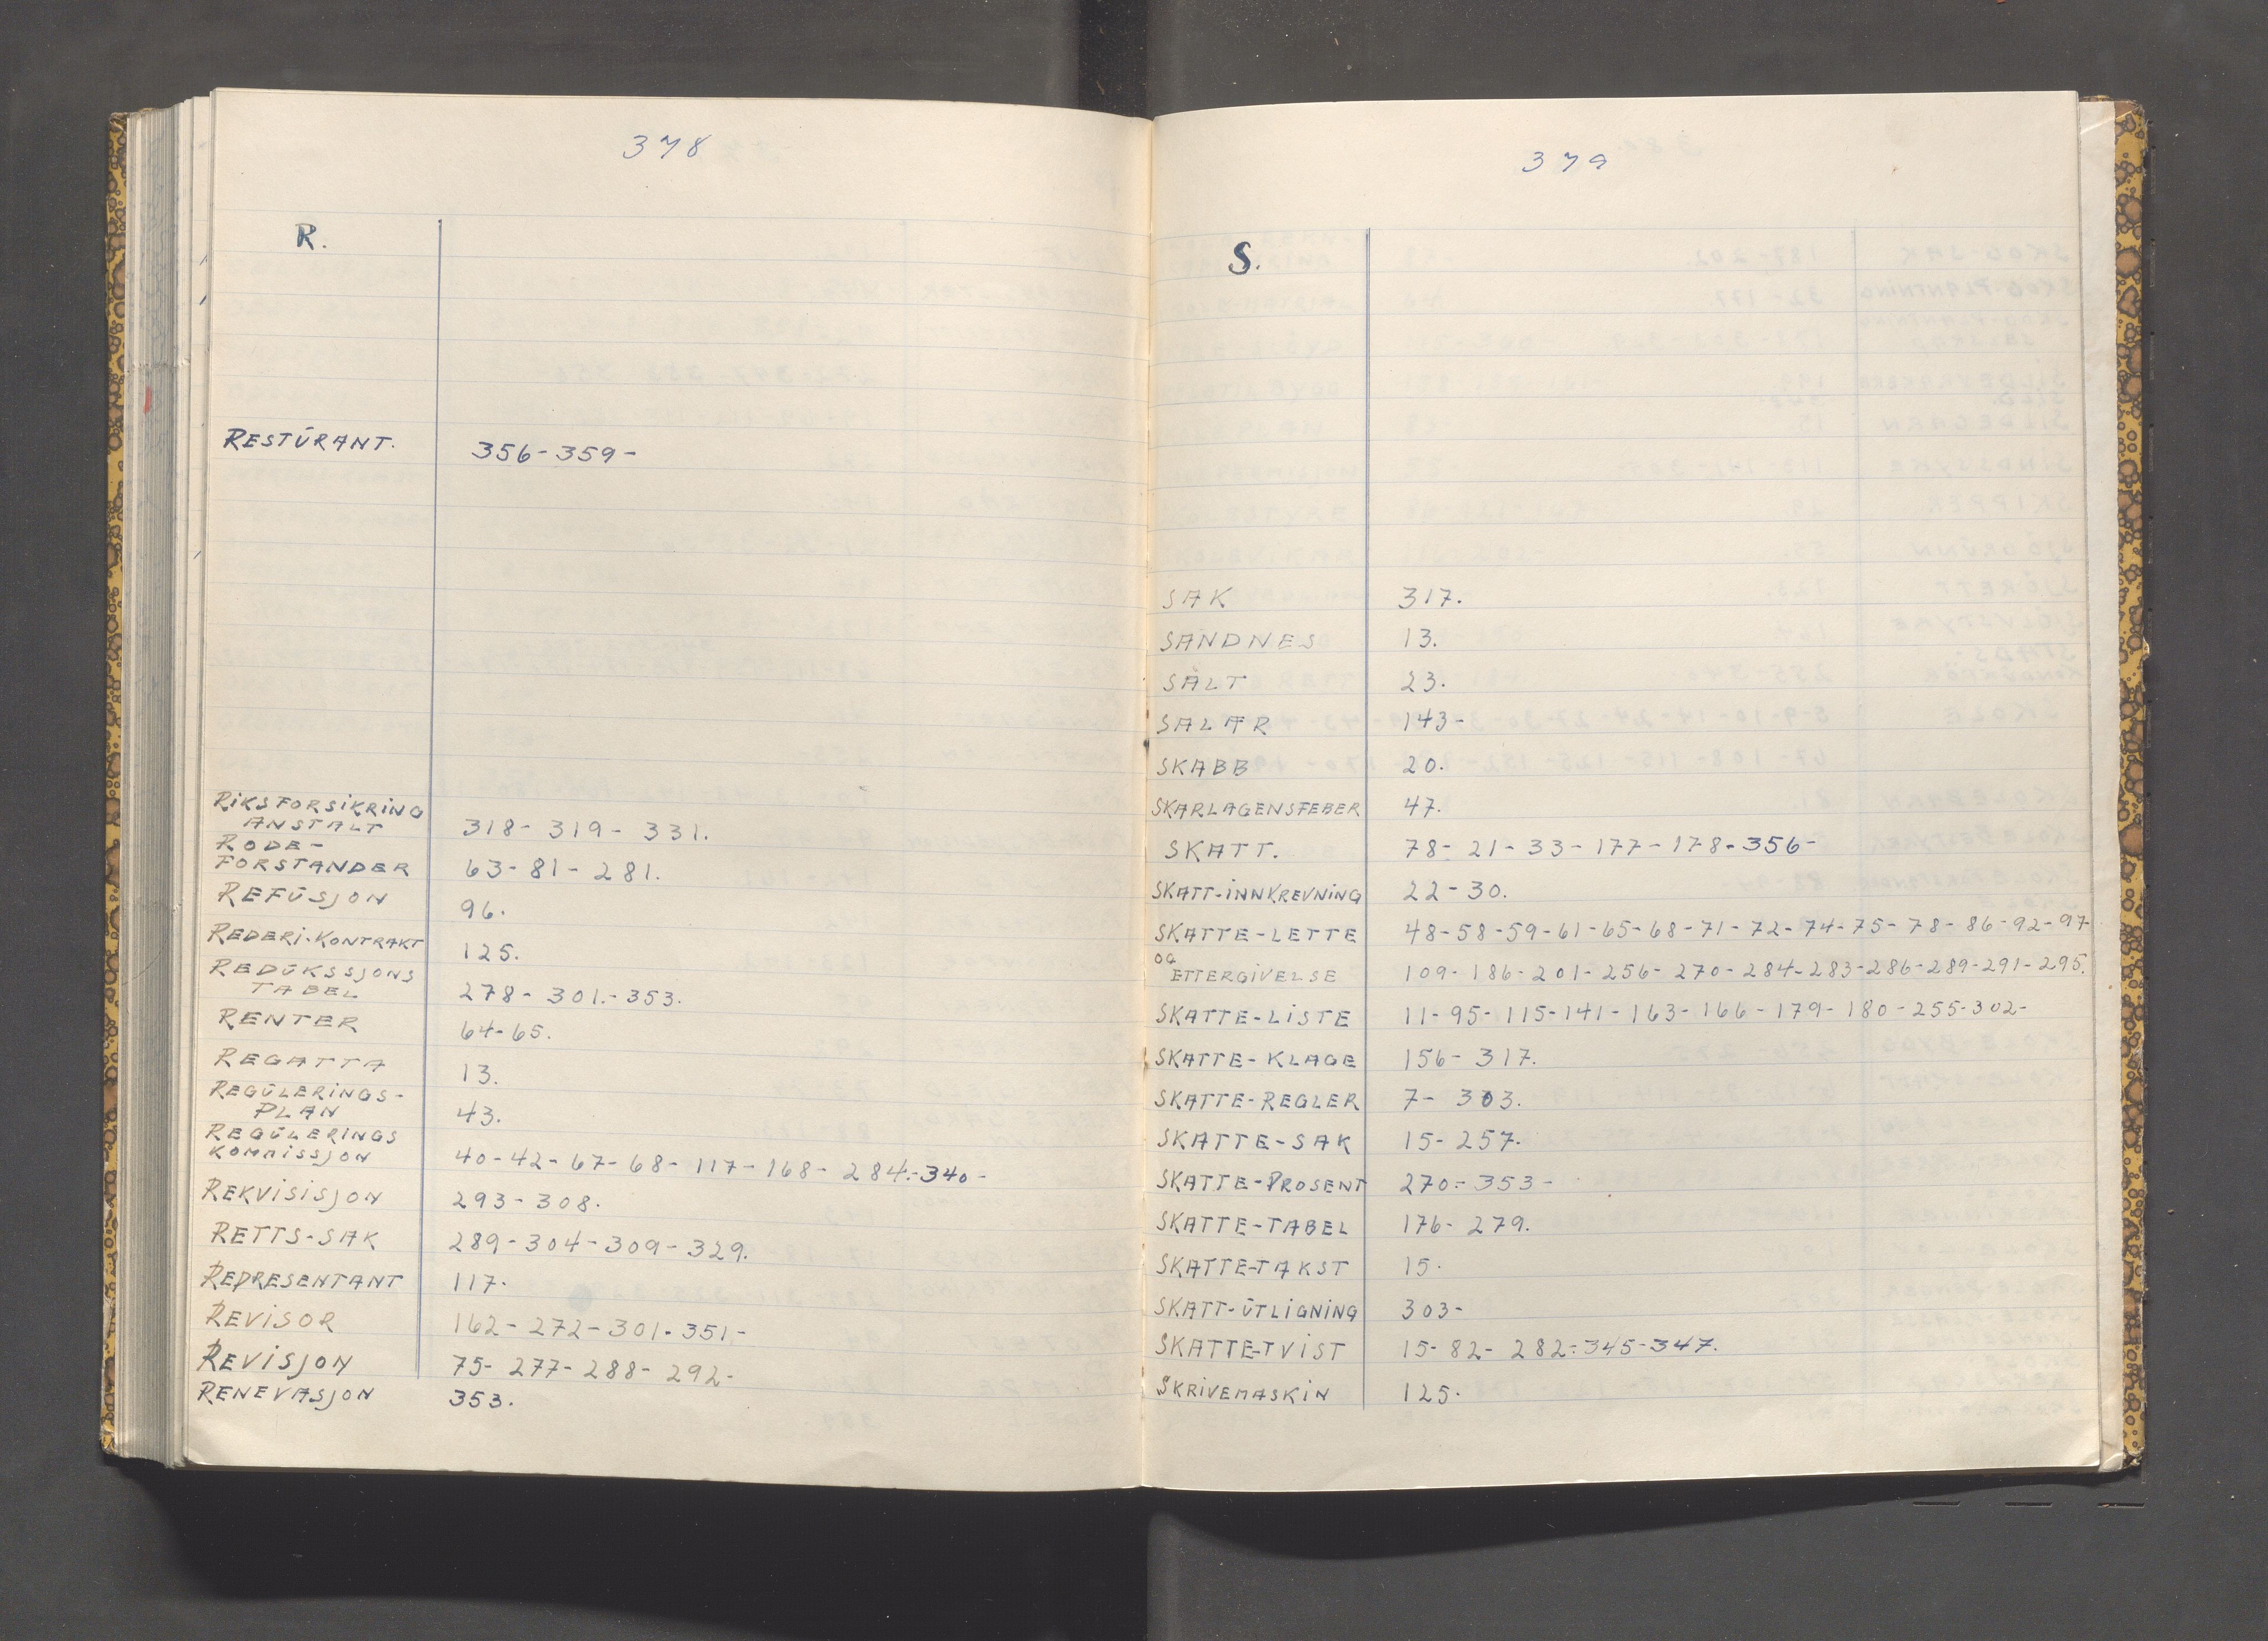 378
R.
RESTŪRANT. 356-359-
RiKSFORSiKRiNG
ANSTALT 318- 319- 331.
RODE-
FORSTANDER 63-81- 281.
REFŪSJON 96.
REDERi-KONTRAKT 125.
REDŪKSSJONS
TABEL 278- 301.-353.
RENTER 64-65.
REGATTA 13.
REGŪLERiNGS-
PLAN 43.
REGŪLERINGS
KOMMiSSJON 40-42-67-68-117-168-284.-340-
REKViSiSJON 293-308.
RETTS-SAK 289-304-309-329.
REPRESENTANT 117.
REViSOR 162-272-301.351.-
REViSJON 75-277-288-292-
RENEVASJON 353.
379
S.
SAK 317.
SANDNES 13.
SALT 23.
SALÆR 143-
SKABB 20.
SKARLAGENSFEBER 47.
SKATT. 78-21-33-177-178-356-
SKATT-iNNKREVNiNG 22-30.
SKATTE-LETTE 48-58-59-61-65-68-71-72-74-75-78-86-92-97
OG
ETTERGiVELSE 109-186-201-256-270-284-283-286-289-291-295.
SKATTE-LiSTE 11-95-115-141-163-166-179-180-255-302-
SKATTE-KLAGE 156-317.
SKATTE-REGLER 7- 303.
SKATTE-SAK 15-257.
SKATTE-PROSENT 270.-353-
SKATTE-TABEL 176-279.
SKATTE-TAKST 15.
SKATT-ŪTLiGNiNG 303-
SKATTE-TViST 15-82-282.-345-347.
SKRiVEMASKiN 125.